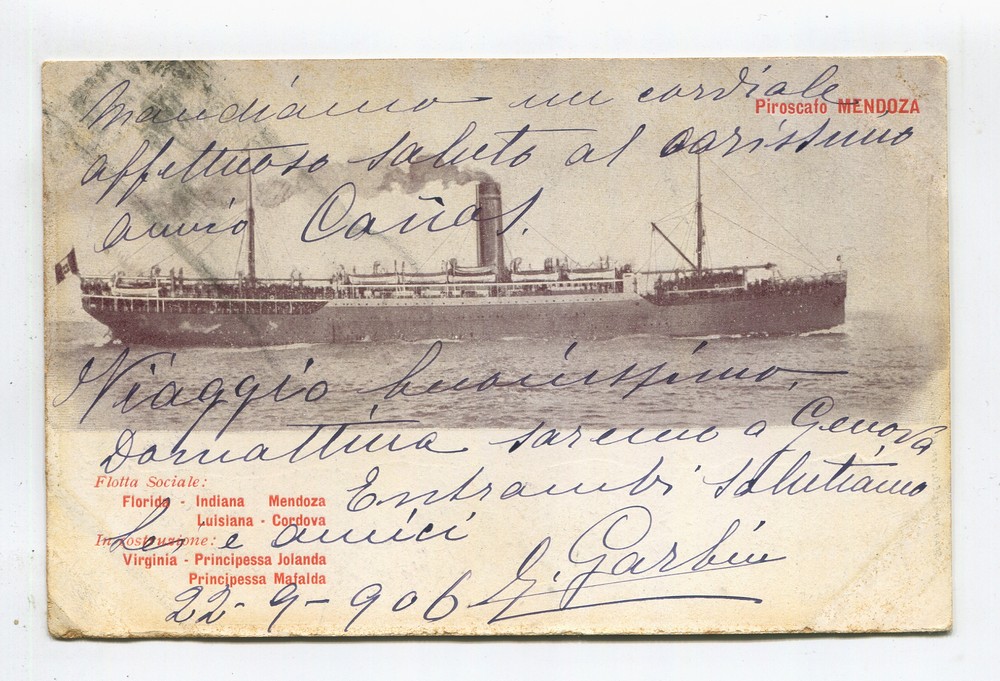 Mandiamo un cordiale
Piroscafo MENDOZA
affettuoso saluto al carissimo
amico Cañas.
Viaggio buonissimo,
Domattina saremo a Genova
Flotta Sociale:
Entrambi salutiamo
Florida - Indiana Mendoza
Luisiana - Cordova
Lei e amici
In costruzione:
Virginia - Principessa Jolanda
Principessa Mafalda
22-9-906 G. Garbin